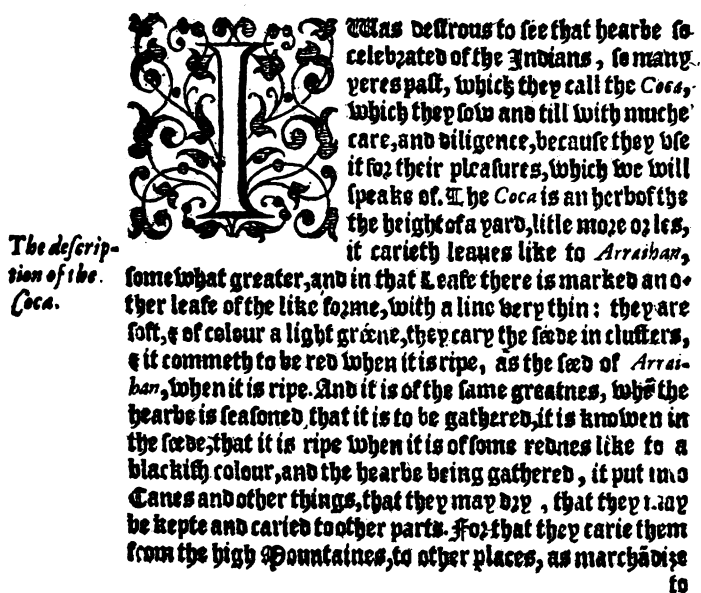 I Was desirous to see that hearbe so
celebrated of the Indians, so many
yeres past, which they call the Coca,
which they sow and till with muche
care, and diligence, because they vse
it for their pleasures, which we will
speake of. The Coca is an herb of the
the height of a yard, litle more or les,
it carieth leaues like to Arraihan,
somewhat greater, and in that Leafe there is marked ano-
ther leafe of the like forme, with a line very thin: they are
soft, & of colour a light gréene, they cary the séede in clusters,
& it commeth to be red when it is ripe, as the séed of Arrai-
han, when it is ripe. And it is of the same greatnes, whẽ the
hearbe is seasoned that it is to be gathered, it is knowen in
the séede, that it is ripe when it is of some rednes like to a
blackish colour, and the hearbe being gathered, it put into
Canes and other things, that they may dry, that they may
be kepte and caried to other parts. For that they carie them
from the high Mountaines, to other places, as marchãdize
to
The descrip-
tion of the
Coca.